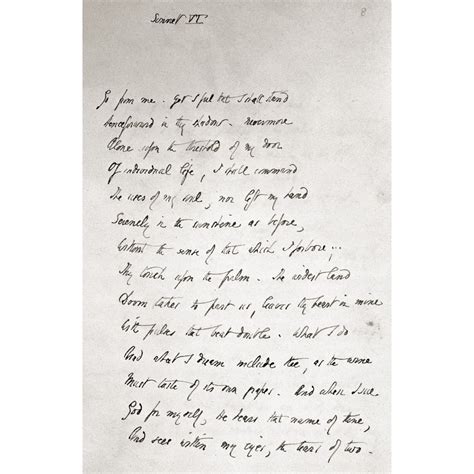 Sonnet VI
8
Go from me. Yet I feel that I shall stand
Henceforward in thy shadow. Nevermore
Alone upon the threshold of my door
Of individual life, I shall command
The uses of my soul, nor lift my hand
Serenely in the sunshine as before,
Without the sense of that which I forbore, ..
Thy touch upon the palm. The widest land
Doom takes to part us, leaves thy heart in mine
With pulses that beat double. What I do
And what I dream include thee, as the wine
Must taste of its own grapes. And when I sue
God for myself, He hears that name of thine,
And sees within my eyes, the tears of two.